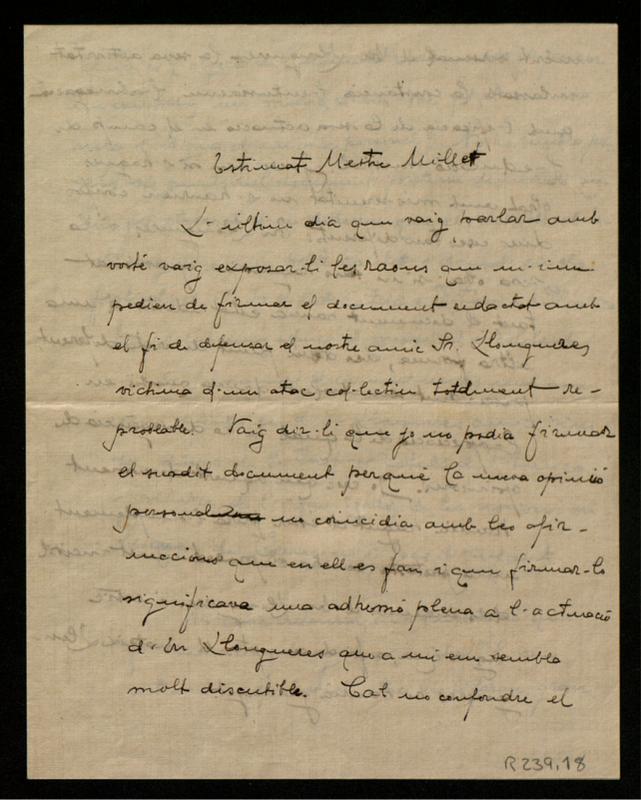 Estimat Mestre Millet
L-últim dia que vaig parlar amb
vostè vaig exposar-li les raons que m-im
pedien de firmar el document redactat amb
el fi de defensar el nostre amic Sr. Llongueres
victima d-un atac col-lectiu totalment re-
probable. Vaig dir-li que jo no podia firmar
el susdit document perquè la meva opinió
personal no coincidia amb les afir-
macions que en ell es fan i que firmar-lo
significava una adhessió plena a l-actuació
d-En Llongueres que a mi em sembla
molt discutible. Cal no confondre el
R 239,18